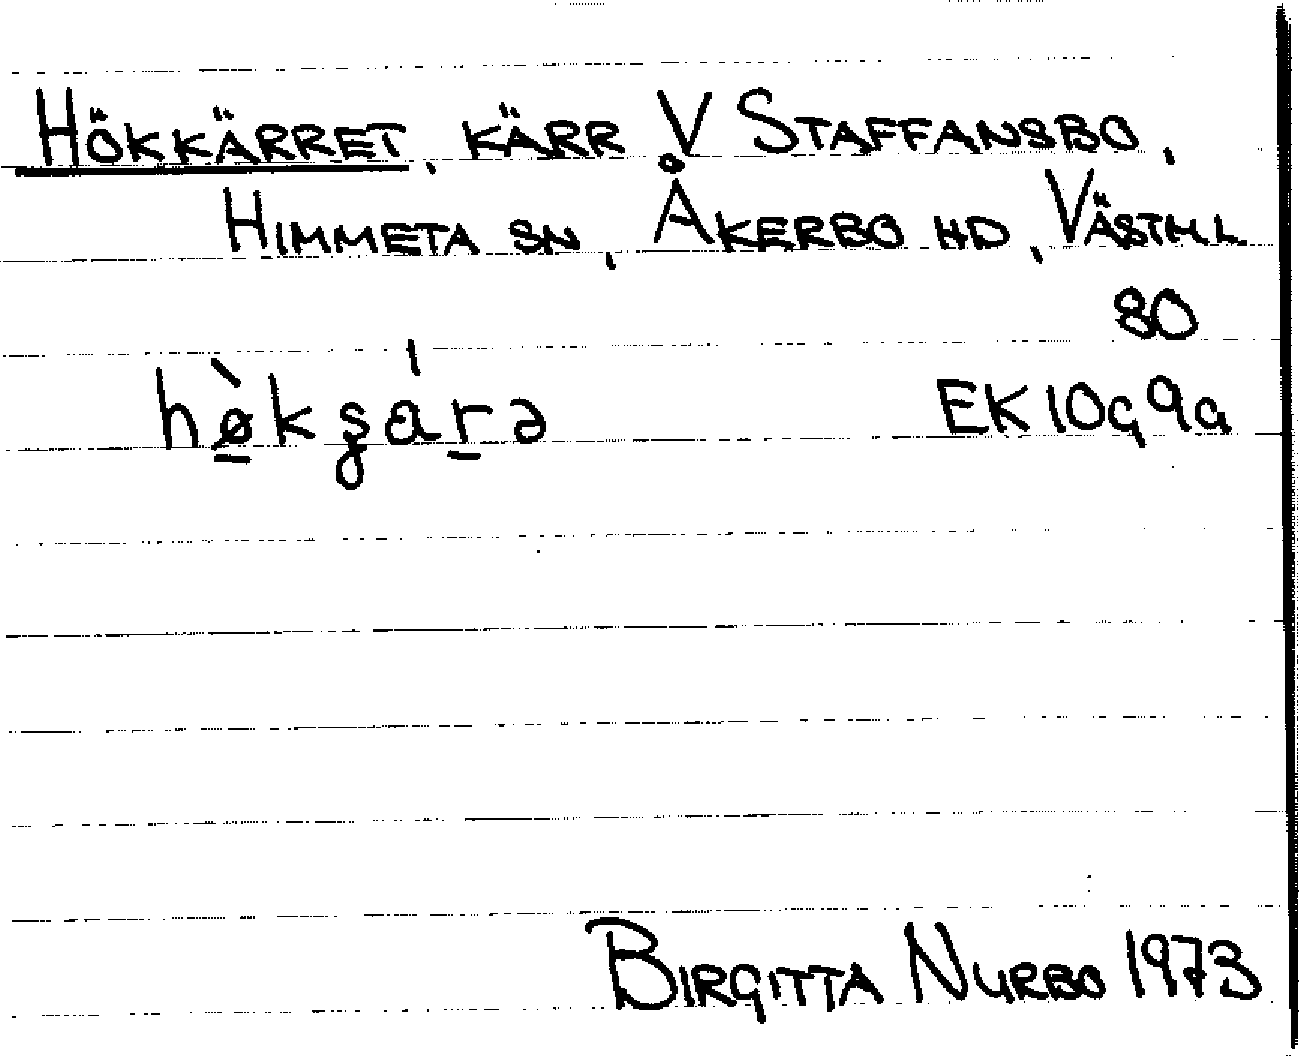 HÖKKÄRRET, KÄRR V STAFFANSBO,
HIMMETA SN, ÅKERBO HD, VÄSTML
80
hø̀kʂárə EK10G9a
BIRGITTA NURBO 1973